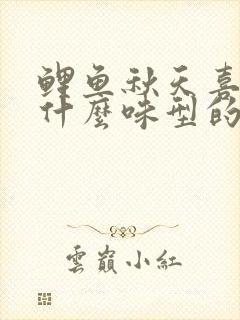 鲤鱼秋天喜
什麼味型的
雲巔小紅